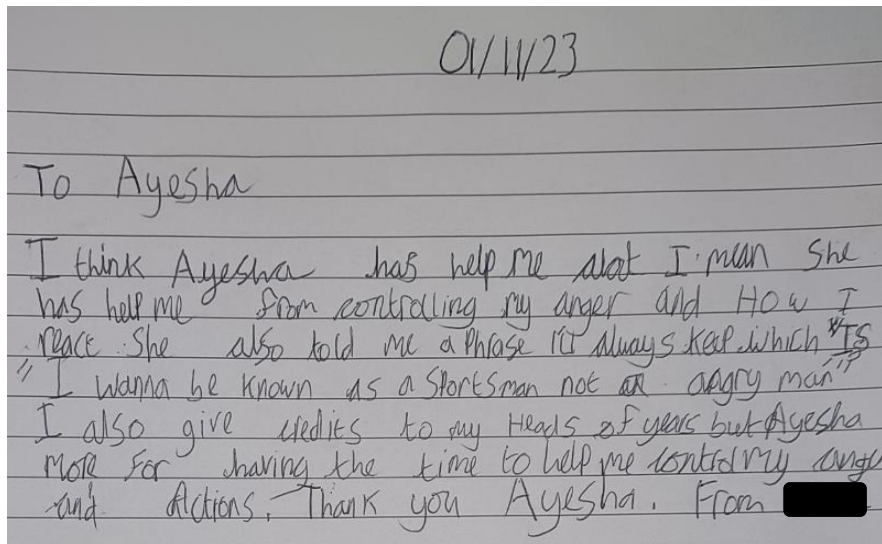 01/11/23
To Ayesha
I think Ayesha has help me alot I mean She
has help me from controlling my anger and How I
react. She also told me a phrase I'll always keep which "IS
"I wanna be known as a Sportsman not an angry man"
I also give credits to my Heads of years but Ayesha
more for having the time to help me control my
and Actions. Thank you Ayesha. From